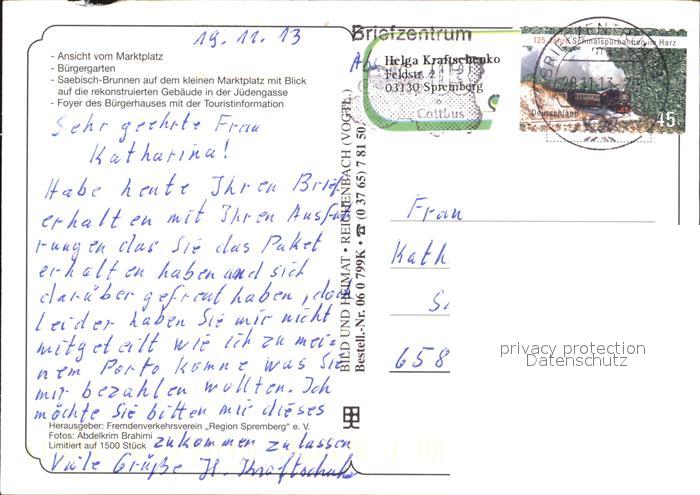 19.11.13
- Ansicht vom Marktplatz
- Bürgergarten
- Saebisch-Brunnen auf dem kleinen Marktplatz mit Blick
auf die rekonstruierten Gebäude in der Jüdengasse
- Foyer des Bürgerhauses mit der Touristinformation
Sehr geehrte Frau
Katharina!
Habe heute Ihren Brief
erhalten mit Ihren Ausfüh
rungen das Sie das Paket
erhalten haben und sich
darüber gefreut haben, doch
leider haben Sie mir nicht
mitgeteilt wie ich zu mei-
nem Porto komme was Sie
mir bezahlen wollten. Ich
möchte Sie bitten mir dieses
zukommen zu lassen
Viele Grüße H. Kraftschenko
Herausgeber: Fremdenverkehrsverein „Region Spremberg" e. V.
Fotos: Abdelkrim Brahimi
Limitiert auf 1500 Stück
BILD UND HEIMAT • REICHENBACH (VOGTL.)
Bestell.-Nr. 06 0 799K • ☎ (0 37 65) 7 81 50
Briefzentrum
Abs
Helga Kraftschenko
Feldstr. 2
03130 Spremberg
Cottbus
BRIEFZENTRUM
125 Jahre Schmalspurbahnen im Harz
Deutschland
45
Frau
Kath
658
privacy protection
Datenschutz